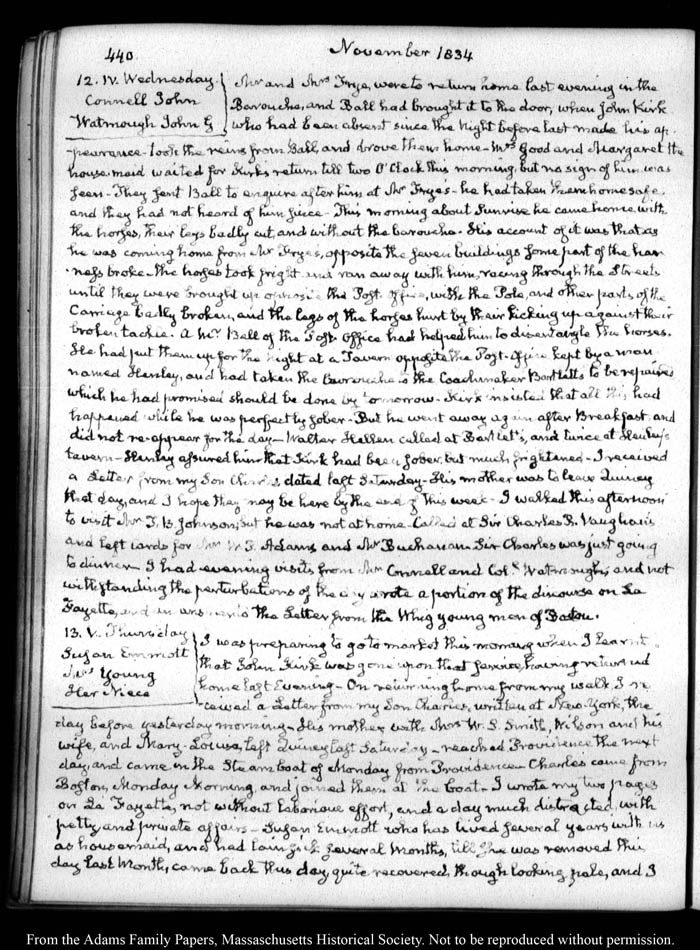 440
November 1834
12. IV. Wednesday.
Connell John
Watmough John G
Mr and Mrs Frye, were to return home last evening in the
Barouche, and Ball had brought it to the door, when John Kirk
who had been absent since the Night before last made his ap
-pearance- took the reins from Ball, and drove them home- Mrs Good and Margaret the
house maid waited for Kirk's return till two O'Clock this morning, but no sign of him was
seen- They sent Ball to enquire after him at Mr Fryes- he had taken them home safe,
and they had not heard of him since- This morning about Sunrise he came home with
the horses, their legs badly cut, and without the barouche. His account of it was that as
he was coming home from Mr Fryes, opposite the seven buildings some part of the har
-ness broke- the horses took fright and ran away with him, racing through the Streets
until they were brought up opposite the Post Office, with the Pole, and other parts of the
Carriage badly broken, and the legs of the horses hurt by their kicking up against their
broken tackle. A Mr Ball of the Post Office had helped him to disentangle the horses.
He had put them up for the night at a Tavern opposite the Post-Office kept by a man
named Hanley, and had taken the Barouche to the Coachmaker Bartletts to be repaired
which he had promised should be done by tomorrow- Kirk insisted that all this had
happened while he was perfectly sober- But he went away again after Breakfast and
did not re-appear for the day- Walter Hellen called at Bartlet's, and twice at Hanley's
tavern- Hanley assured him that Kirk had been sober, but much frightened- I received
a Letter from my Son Charles dated last Saturday- His mother was to leave Quincy
that day, and I hope they may be here by the end of this week- I walked this afternoon
to visit Mr J. B. Johnson, but he was not at home- Called at Sir Charles R. Vaughan's
and left cards for Mr W. J. Adams and Mr Buchanan- Sir Charles was just going
to dinner- I had evening visits from Mr Connell and Coll Watmough, and not
withstanding the perturbations of the day wrote a portion of the discourse on La
Fayette, and an answer to the Letter from the Whig young men of
13. V. Thursday
Susan Emmott
Mrs Young
Her Niece
I was preparing to go to market this morning when I learnt
that John Kirk was gone upon that service, having returned
home last Evening- On returning home from my walk, I re
-ceived a Letter from my Son Charles, written at New-York, the
day before yesterday morning- His mother, with Mrs W. S. Smith, Wilson and his
wife, and Mary-Louisa, left Quincy last Saturday- reached Providence the next
day, and came in the Steam boat of Monday from Providence- Charles came from
Boston, Monday Morning, and joined them at the boat- I wrote my two pages
on La Fayette, not without laborious effort, and a day much distracted, with
petty and private affairs- Susan Emmott who has lived several years with us
as housemaid, and had lain sick several Months, till she was removed this
day last Month, came back this day, quite recovered, though looking pale, and I
From the Adams Family Papers, Massachusetts Historical Society. Not to be reproduced without permission.